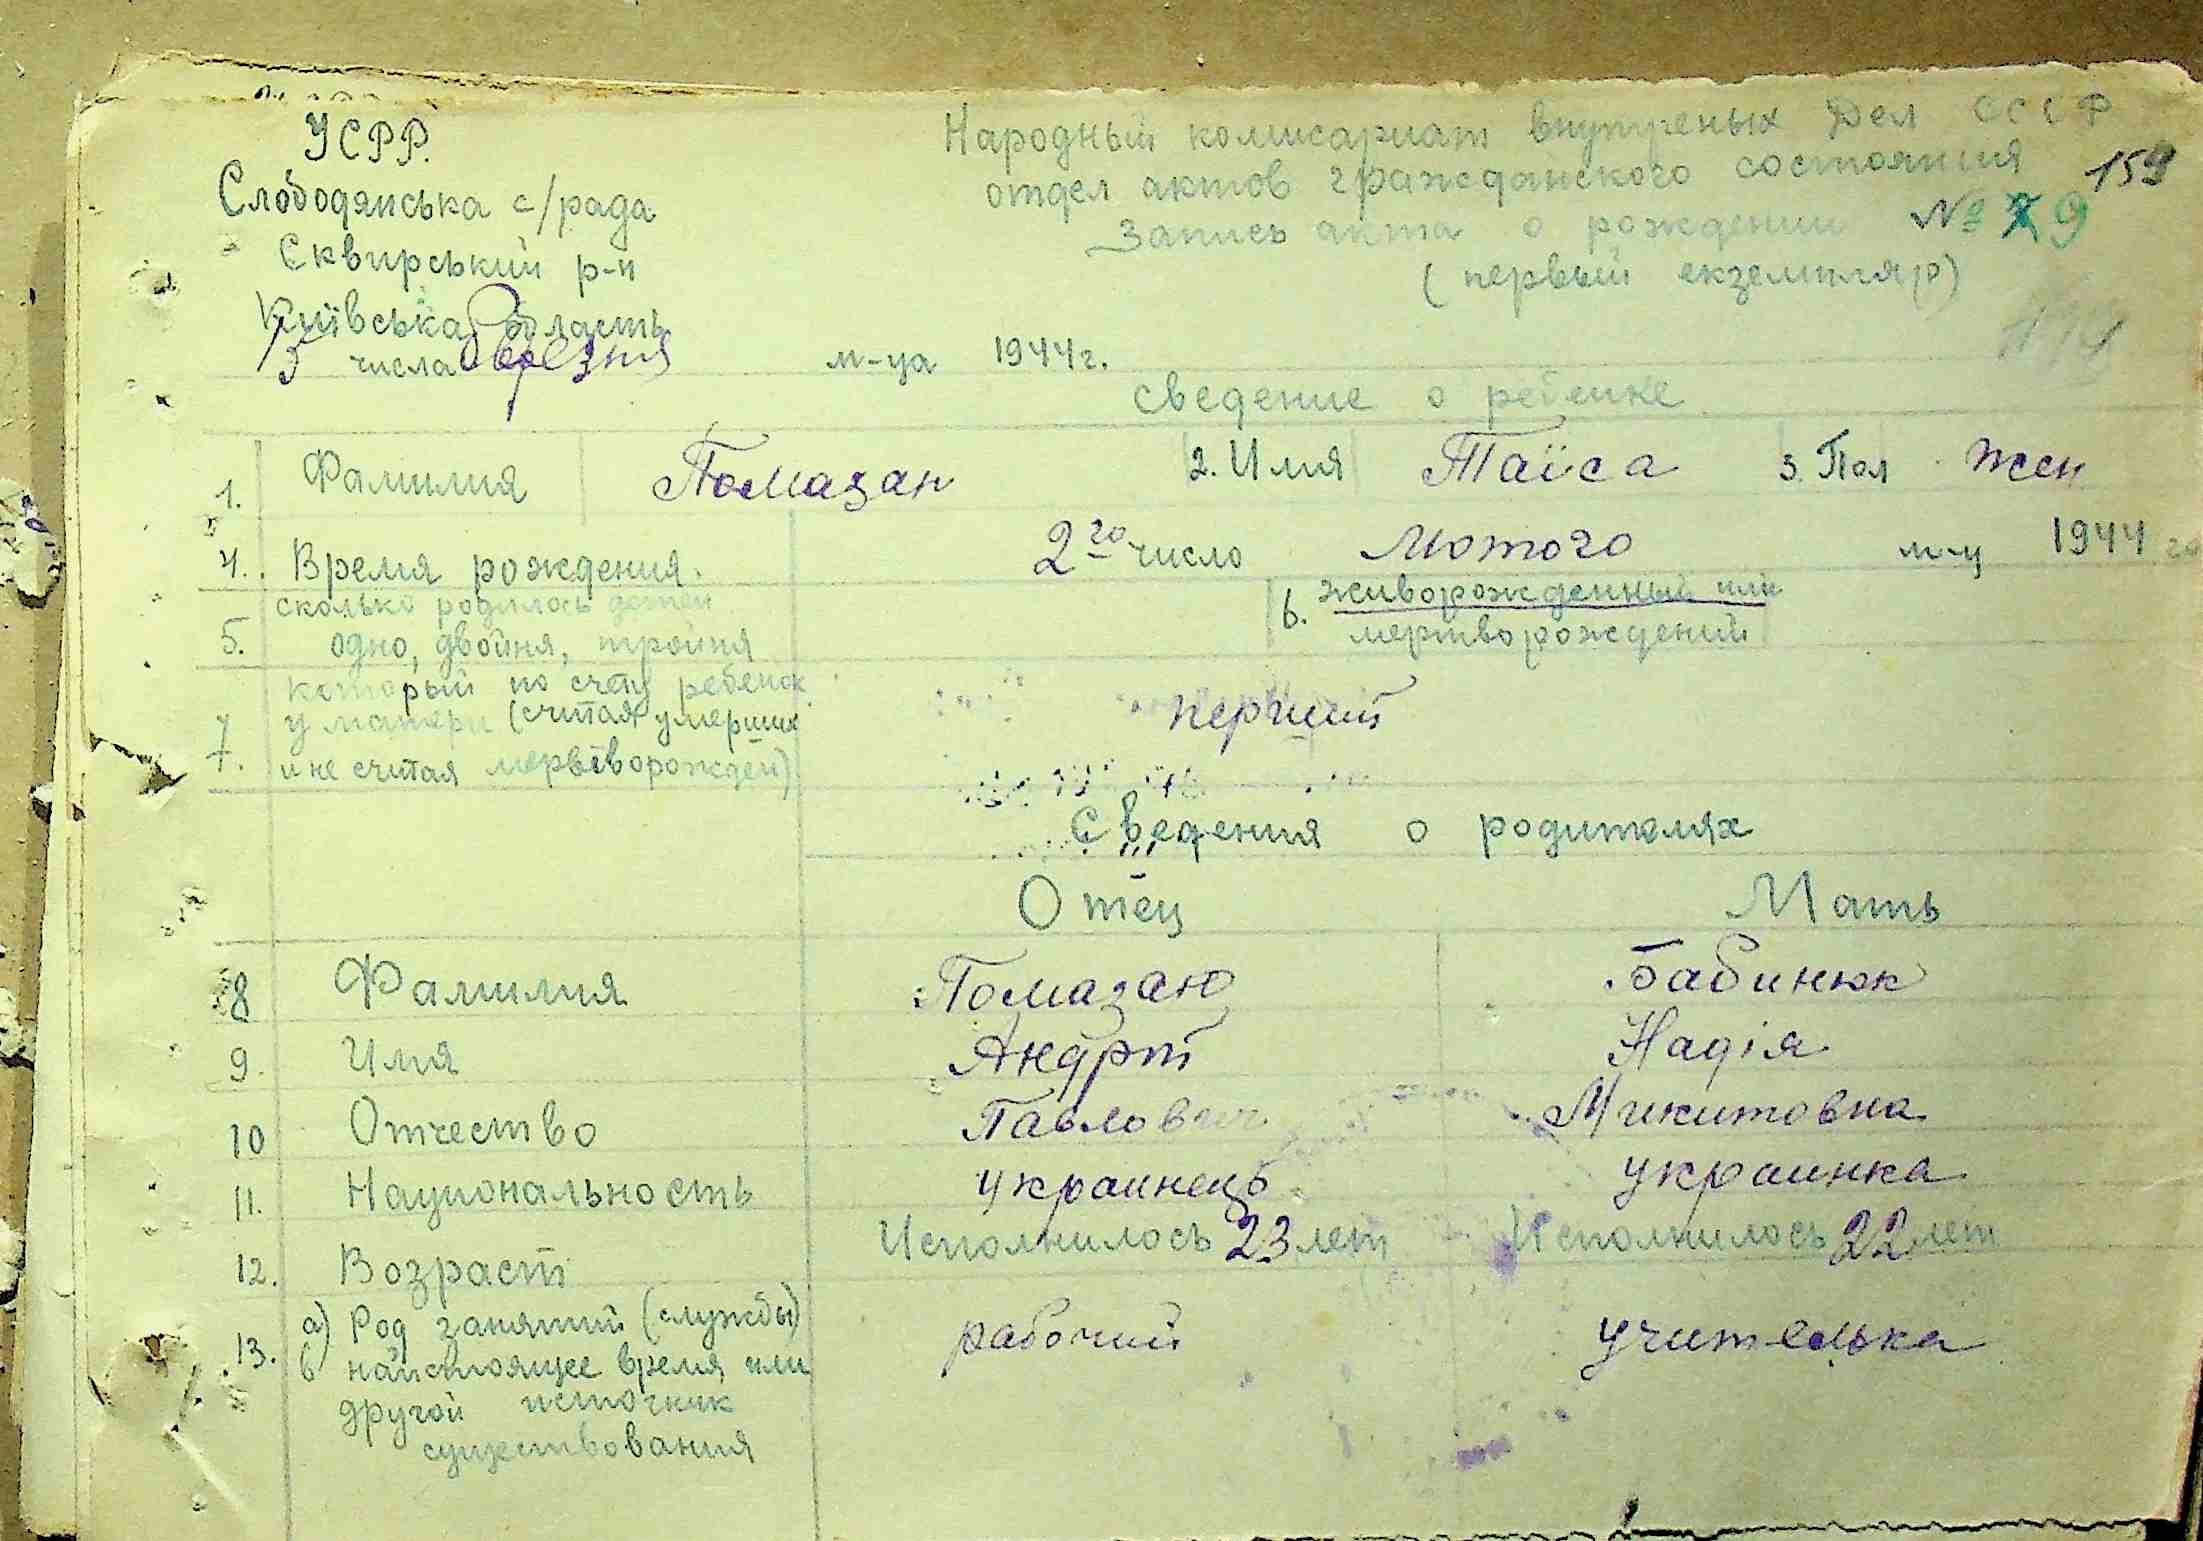 УСРР.
Слободянська с/рада
Сквирський р-н
Київська область
5 числа березня м-ца 1944г.
Народный комисариат внутреных Дел СССР
отдел актов гражданского состояния 159
Запись акта о рождении № 9
(первый екземпляр)
сведение о ребенке
1. Фамилия Помазан 2. Имя Таїса 3. Пол жен
4. Время рождения. 2го число Лютого м-ц 1944
5. сколько родилось детей
одно, двойня, тройня
6. живорожденный или
мертворождений
7. который по счету ребенок
у матери (считая умерших
и не считая мертворожден)
перший
Сведения о родителях
Отец Мать
8 Фамилия Помазаю Бабинюк
9. Имя Андрій Надія
10 Отчество Павлович Микитовна
11. Национальность украинець украинка
12. Возраст Исполнилось 23 лет Исполнилось 22 лет
13. а) Род занятий (службы) рабочий учителька
в настоящее время или
другой источник
существования